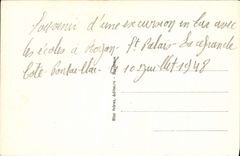 Souvenir d'une excursion en car avec
les écoles à Royan St Palais - La grande
Côte Pontaillac - le 10 Juillet 1948